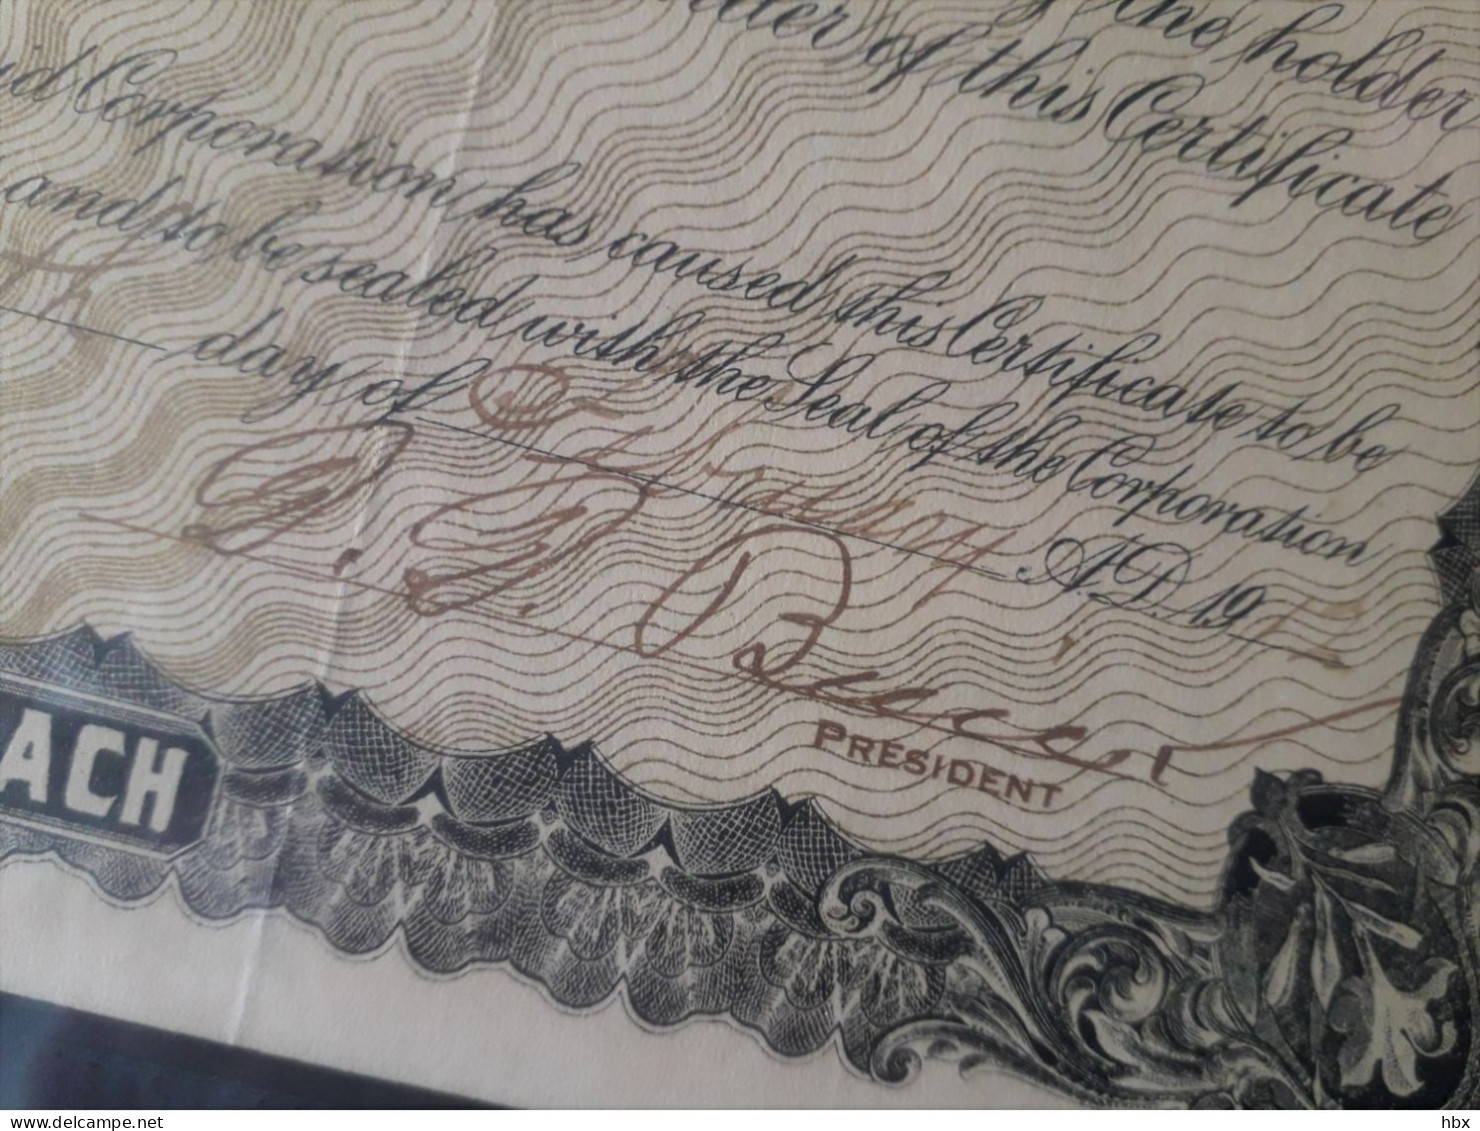 the holder
of this Certificate
Corporation has caused this Certificate to be
and to be sealed with the Seal of the Corporation
th day of February A.D. 19
PRESIDENT
ACH
delcampe.net
hbx